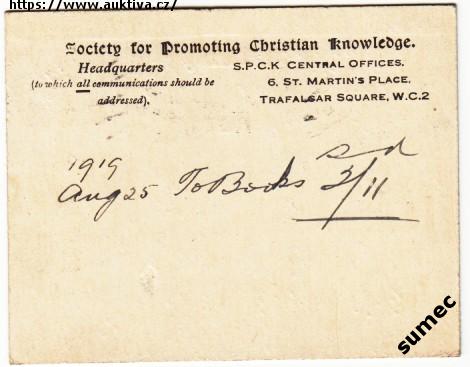 https://www.auktiva.cz/
Society for Promoting Christian Knowledge.
Headquarters
(to which all communications should be
addressed).
S.P.C.K CENTRAL OFFICES.
6, ST. MARTIN'S PLACE,
TRAFALGAR SQUARE, W.C.2
1919
s d
Aug 25 To Books 3/11
sumec